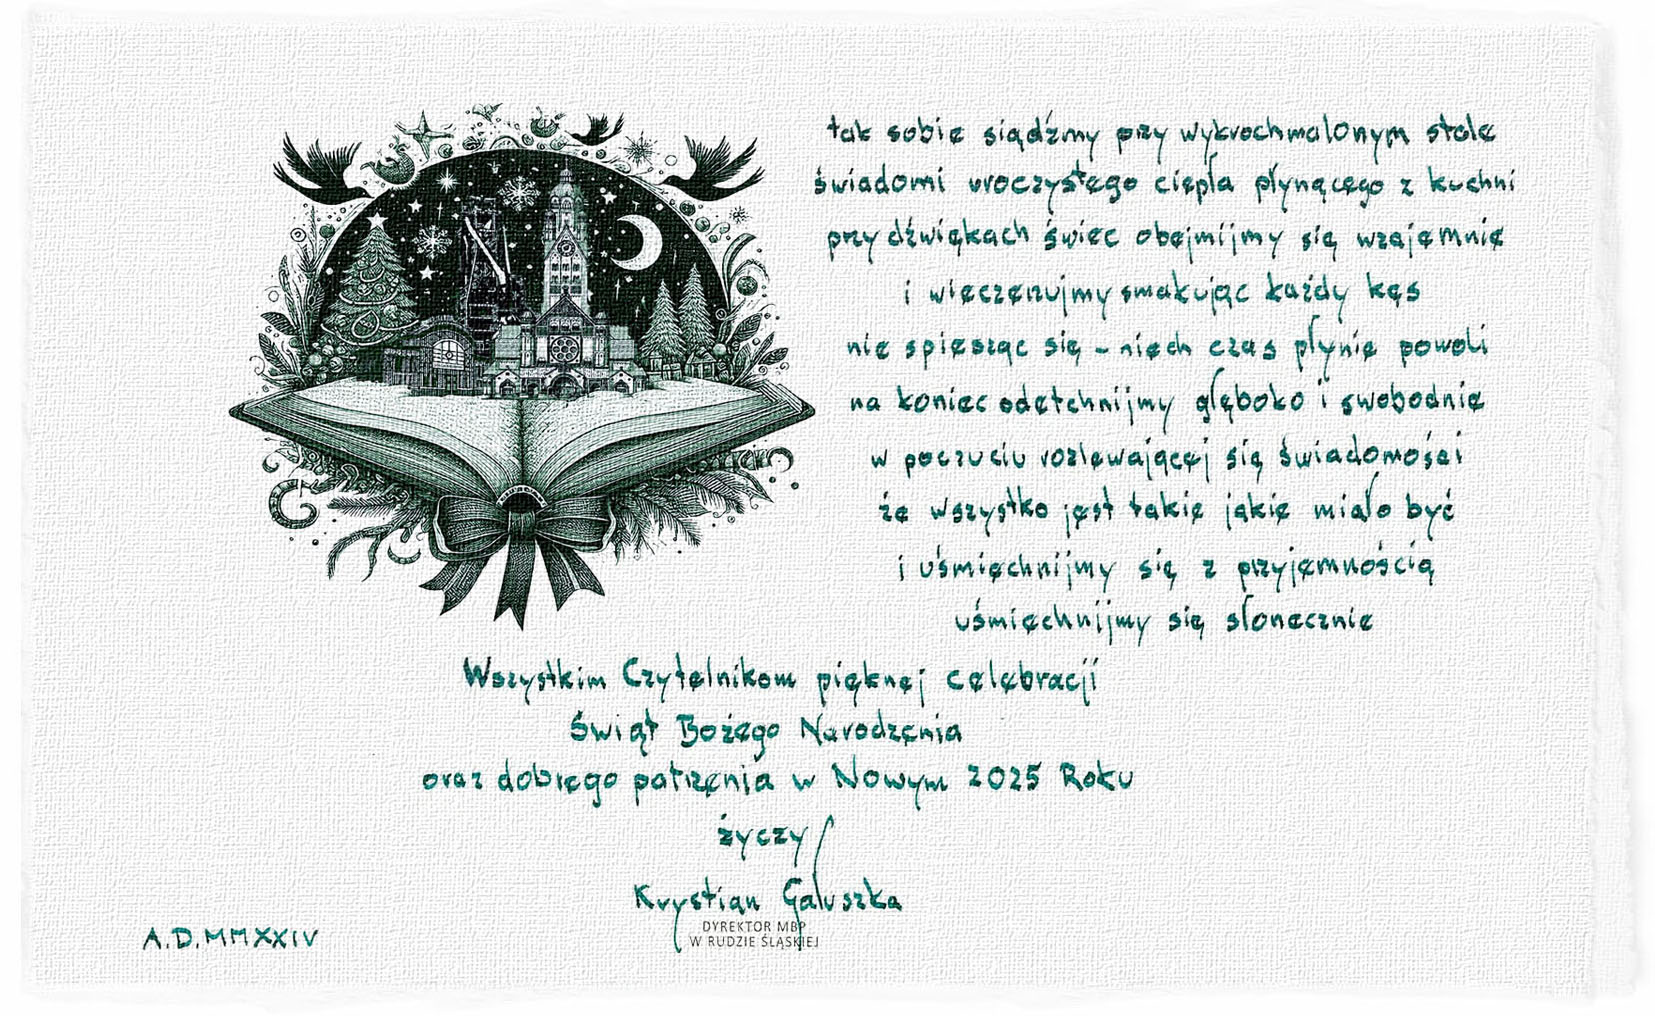 tak sobie siądźmy przy wykrochmalonym stole
świadomi uroczystego ciepła płynącego z kuchni
przy dźwiękach świec obejmijmy się wzajemnie
i wieczerzujmy smakując każdy kęs
nie spiesząc się - niech czas płynie powoli
na koniec odetchnijmy głęboko i swobodnie
w poczuciu rozlewającej się świadomości
że wszystko jest takie jakie miało być
i uśmiechnijmy się z przyjemnością
uśmiechnijmy się słonecznie
Wszystkim Czytelnikom pięknej celebracji
Świąt Bożego Narodzenia
oraz dobrego patrzenia w Nowym 2025 Roku
życzy
Krystian Gałuszka
DYREKTOR MBP
W RUDZIE ŚLĄSKIEJ
A.D.MMXXIV